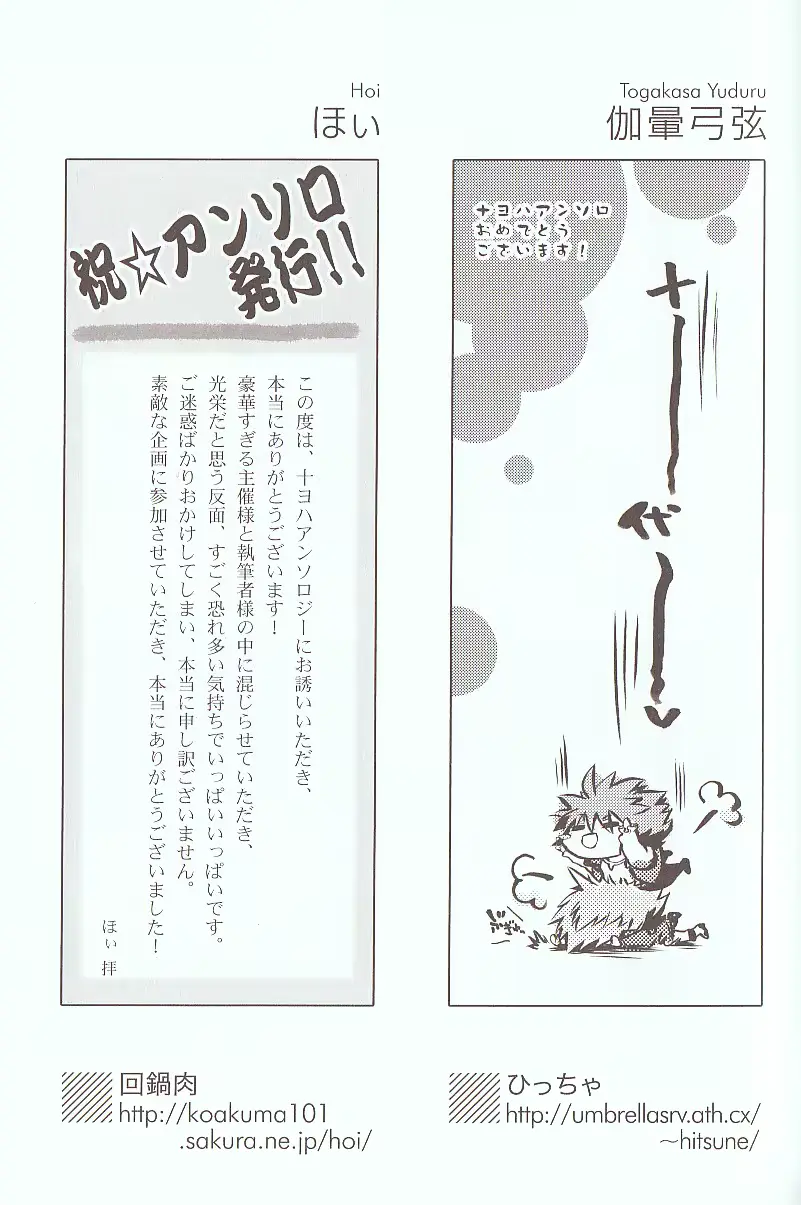 Togakasa Yuduru
伽暈弓弦
十ヨハアンソロ
おめでとう
ございます!
十ーー代ーー
ひっちゃ
http://umbrellasrv.ath.cx/
~hitsune/
Hoi
ほぃ
祝☆アンソロ
発行!!
この度は、十ヨハアンソロジーにお誘いいただき、
本当にありがとうございます!
豪華すぎる主催様と執筆者様の中に混じらせていただき、
光栄だと思う反面、すごく恐れ多い気持ちでいっぱいいっぱいです。
ご迷惑ばかりおかけしてしまい、本当に申し訳ございません。
素敵な企画に参加させていただき、本当にありがとうございました!
ほぃ 拝
回鍋肉
http://koakuma101
.sakura.ne.jp/hoi/